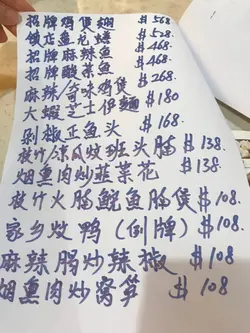 招牌鸡煲翅 $568
镇店鱼龙蟮 $528
招牌麻辣鱼 $468
招牌酸菜鱼 $468
麻辣/奇味鸡煲 $268
大虾芝士伊麵 $180
剁椒正鱼头 $168
豉汁/凉瓜炆班头腩 $138
烟熏肉炒韮菜花 $138
豉汁火腩鲩鱼腩煲 $108
家乡炆鸭(例牌) $108
麻辣肠炒辣椒 $108
烟熏肉炒窝笋 $108